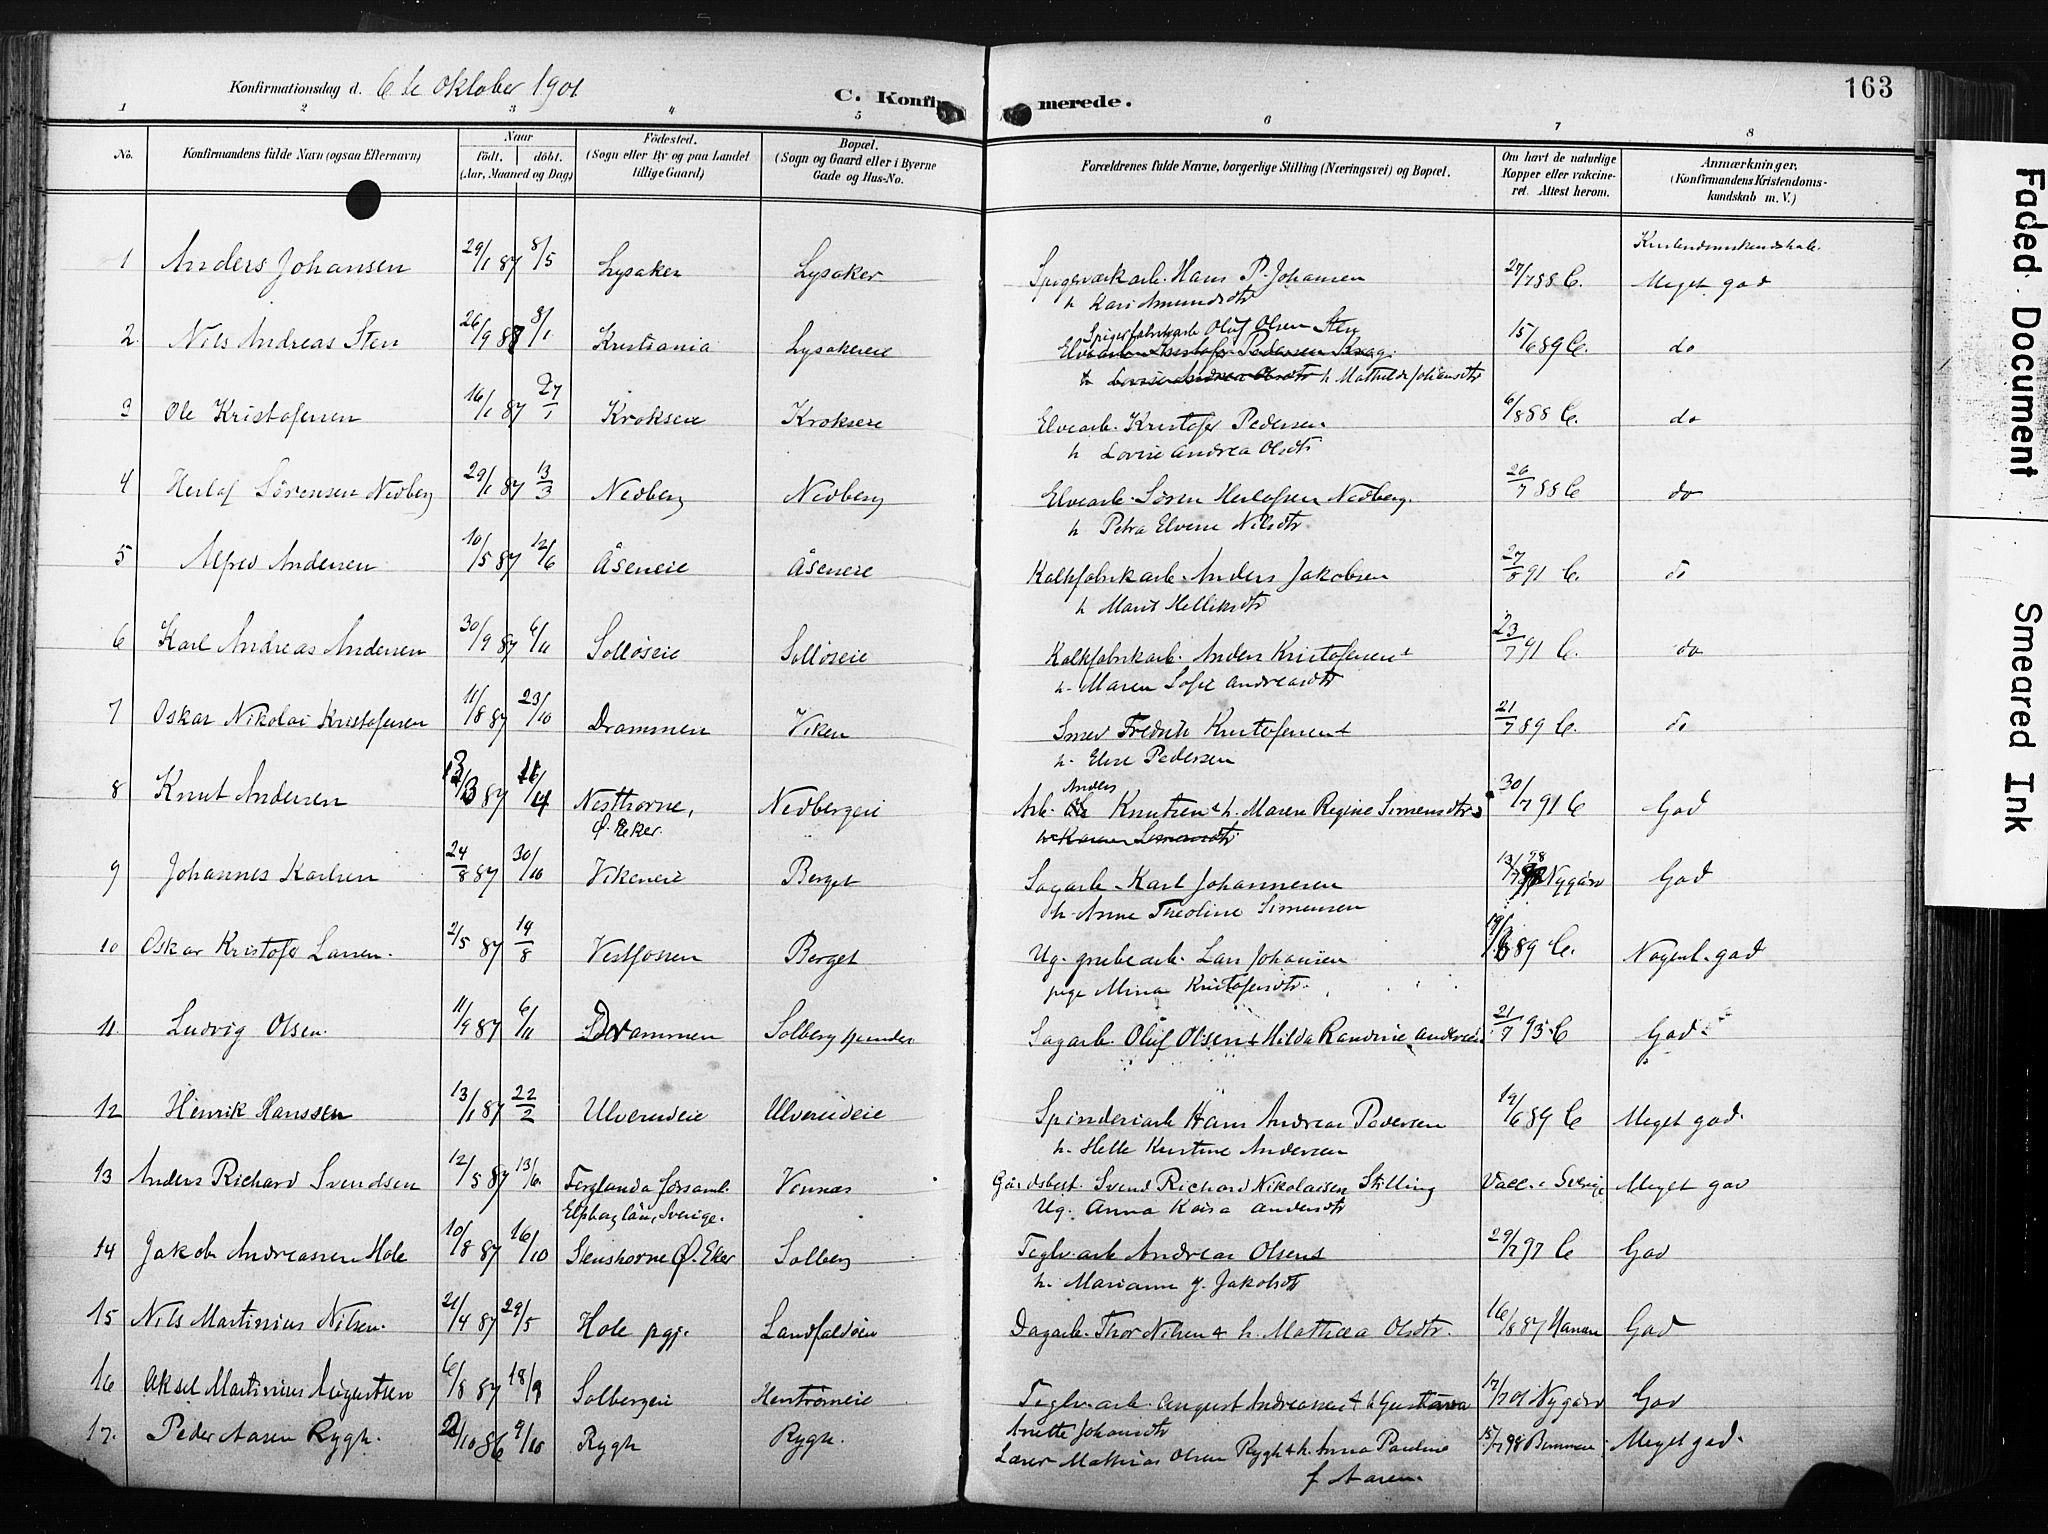 Konfirmationsdag d. 6te Oktober 1901.
C. Konfirmerede.
163
1 2 3 4 5 6 7 8
No. Konfirmandens fulde Navn (ogsaa Efternavn) Naar født. døbt. (Aar, Maaned og Dag) Fødested. (Sogn eller By og paa Landet tillige Gaard) Bopæl. (Sogn og Gaard eller i Byerne Gade og Hus-No. Forældrenes fulde Navne, borgerlige Stilling (Næringsvei) og Bopæl. Om havt de naturlige Kopper eller vakcineret. Attest herom. Anmærkninger. (Konfirmandens Kristendomskundskab m. V.)
Kristendomskundskab.
1 Anders Johansen 29/1 87 8/5 Lysaker Lysaker Spigerværkarb. Hans P. Johansen 27/7 88 C. Meget god
h. Kari Amundsdtr
2 Nils Andreas Sten 26/9 87 8/1 Kristiania Lysakereie Spigerfabrikarb Oluf Olsen Sten 15/6 89 C. do
Elvearb Kristofer Pedersen
h Lovise Andrea Olsdtr h Mathilde Johansdtr
3 Ole Kristofersen 16/1 87 27/1 Krokseie Krokseie Elvearb. Kristofer Pedersen 6/8 88 C. do
h Lovise Andrea Olsdtr
4 Herlof Sörensen Nedberg 29/1 87 13/3 Nedberg Nedberg Elvearb. Sören Herlofsen Nedberg. 26/7 88 C do
h Petra Elvine Nilsdtr.
5 Alfred Andersen 10/5 87 12/6 Åseneie Åseneie Kalkfabrikarb. Anders Jakobsen 27/8 91 C. do
h Marit Helliksdtr
6 Karl Andreas Andersen 30/9 87 6/11 Solløseie Solløseie Kalkfabrikarb. Anders Kristofersen & 23/7 91 C. do
h. Maren Sofie Andreasdtr
7 Oskar Nikolai Kristofersen 11/8 87 23/10 Drammen Viken Smed Fredrik Kristofersen & 21/7 89 C. do
h. Elise Pedersen
8 Knut Andersen 13/3 87 11/4 Nesthorne, Nedbergeie Arb. Anders Knutsen & h. Maren Regine Simensdtr. 30/7 91 C God
Ø. Eker. h Karen Simensdtr
9 Johannes Karlsen 24/8 87 30/10 Vikeneie Berget Sagarb. Karl Johannesen 13/7 98 Nygård God
h. Anne Theoline Simensen
10 Oskar Kristofer Larsen. 2/5 87 14/8 Vestfossen Berget Ug. grubearb. Lars Johansen 19/6 89 C. Nogenl. god
pige Mina Kristofersdtr.
11 Ludvig Olsen. 11/9 87 6/11 Drammen Solbergspinderi Sagarb. Oluf Olsen & Hilda Randine Andersen 21/7 95 C God
12 Henrik Hanssen 13/1 87 22/2 Ulverudeie Ulverudeie Spinderiarb Hans Andreas Pedersen 19/6 89 C Meget god.
h. Helle Kristine Andersen
13 Anders Richard Svendsen 12/5 87 13/6. Forglanda församl. Vennæs Gårdsbest. Svend Richard Nikolaisen Stilling Vacc. i Sverige Meget god
Elfsborg län, Sverige. Ug. Anna Kaisa Andersdtr
14 Jakob Andreassen Hole 10/8 87 16/10 Stenshorne Ø. Eker Solberg Teglv.arb Andreas Olsen & 29/7 97 C God
h. Marianne J. Jakobsdtr
15 Nils Martinius Nilsen. 21/4 87 29/5 Hole pgj. Landfaldeie Dagarb. Thor Nilsen & h. Mathea Olsdtr. 16/8 87 God
16 Aksel Martinius Augustsen 6/8 87 18/9 Solbergeie Teglv.arb. August Andreassen & h Gustava 17/7 01 Nygård God
Anette Johansdtr
17. Peder Aasen Rygh. 2/10 86 9/10 Rygh Rygh. Lærer Mathias Olsen Rygh & h. Anna Pauline 15/7 98 Meget god.
f Aasen.
Faded Document
Smeared Ink